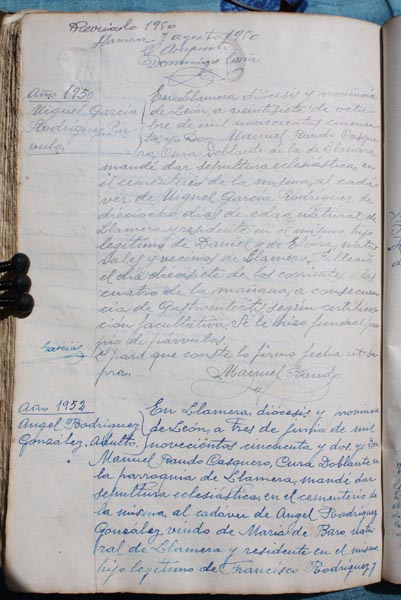 Revisado 1950
Llamera 7 agosto 1950
El Arcipreste
Domingo
Año 1950
Miguel García
Rodríguez, Pár-
vulo.
En Llamera, diócesis y provincia
de León, a veintisiete de octu-
bre de mil novecientos cincuen-
ta, yo Don Manuel Rando Casque-
ro, Cura Doblante de la de Llamera,
mandé dar sepultura eclesiástica, en
el cementerio de la misma, al cadá-
ver de Miguel García Rodríguez, de
dieciocho días de edad, natural de
Llamera y residente en el mismo, hijo
legítimo de Daniel y de Elvira, natu-
rales y vecinos de Llamera, Falleció
el día dieciseis de los corriente, a las
cuatro de la mañana, a consecuen-
cia de Gastroenteritis, según certifica-
ción facultativa. Se le hizo funeral pro-
pio de párvulos.
Y para que conste lo firmo fecha ut su-
pra.
García
Manuel Rando
Año 1952
Angel Rodríguez
González, Adulto.
En Llamera, diócesis y provincia
de León, a Tres de Junio de mil
novecientos cincuenta y dos, yo Don
Manuel Rando Casquero, Cura Doblante en
la parroquia de Llamera, mandé dar
sepultura eclesiástica, en el cementerio de
la misma, al cadáver de Angel Rodríguez
González, viudo de María de Baro, natu-
ral de Llamera y residente en el mismo
hijo legítimo de Francisco Rodríguez y